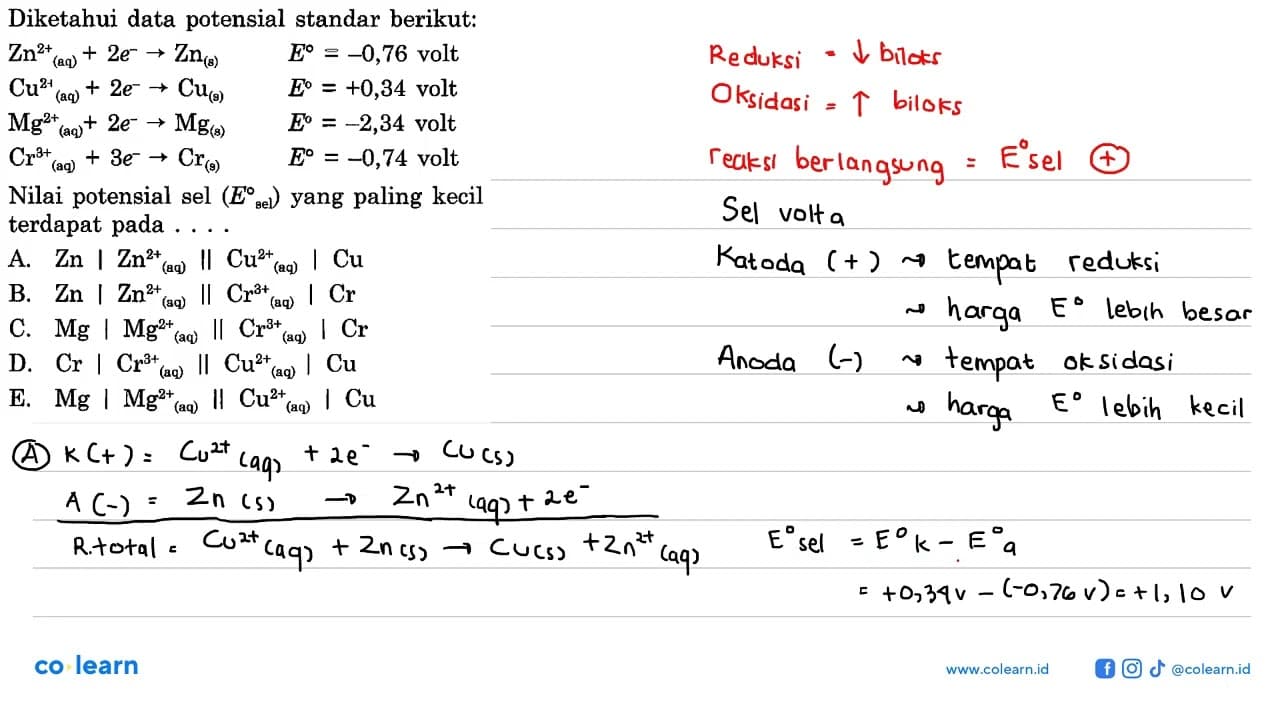 Diketahui data potensial standar berikut:
Zn²⁺(aq) + 2e⁻ → Zn(s) E° = –0,76 volt
Cu²⁺(aq) + 2e⁻ → Cu(s) E° = +0,34 volt
Mg²⁺(aq) + 2e⁻ → Mg(s) E° = –2,34 volt
Cr³⁺(aq) + 3e⁻ → Cr(s) E° = –0,74 volt
Nilai potensial sel (E°sel) yang paling kecil
terdapat pada . . . .
A. Zn | Zn²⁺(aq) || Cu²⁺(aq) | Cu
B. Zn | Zn²⁺(aq) || Cr³⁺(aq) | Cr
C. Mg | Mg²⁺(aq) || Cr³⁺(aq) | Cr
D. Cr | Cr³⁺(aq) || Cu²⁺(aq) | Cu
E. Mg | Mg²⁺(aq) || Cu²⁺(aq) | Cu
Reduksi = ↓ biloks
Oksidasi = ↑ biloks
reaksi berlangsung = E°sel (+)
Sel volta
Katoda (+) → tempat reduksi
→ harga E° lebih besar
Anoda (-) → tempat oksidasi
→ harga E° lebih kecil
(A) K(+) = Cu²⁺(aq) + 2e⁻ → Cu(s)
A(-) = Zn(s) → Zn²⁺(aq) + 2e⁻
R.total = Cu²⁺(aq) + Zn(s) → Cu(s) + Zn²⁺(aq)
E°sel = E°k - E°a
= +0,34 v - (-0,76 v) = +1,10 v
co learn
www.colearn.id
@colearn.id